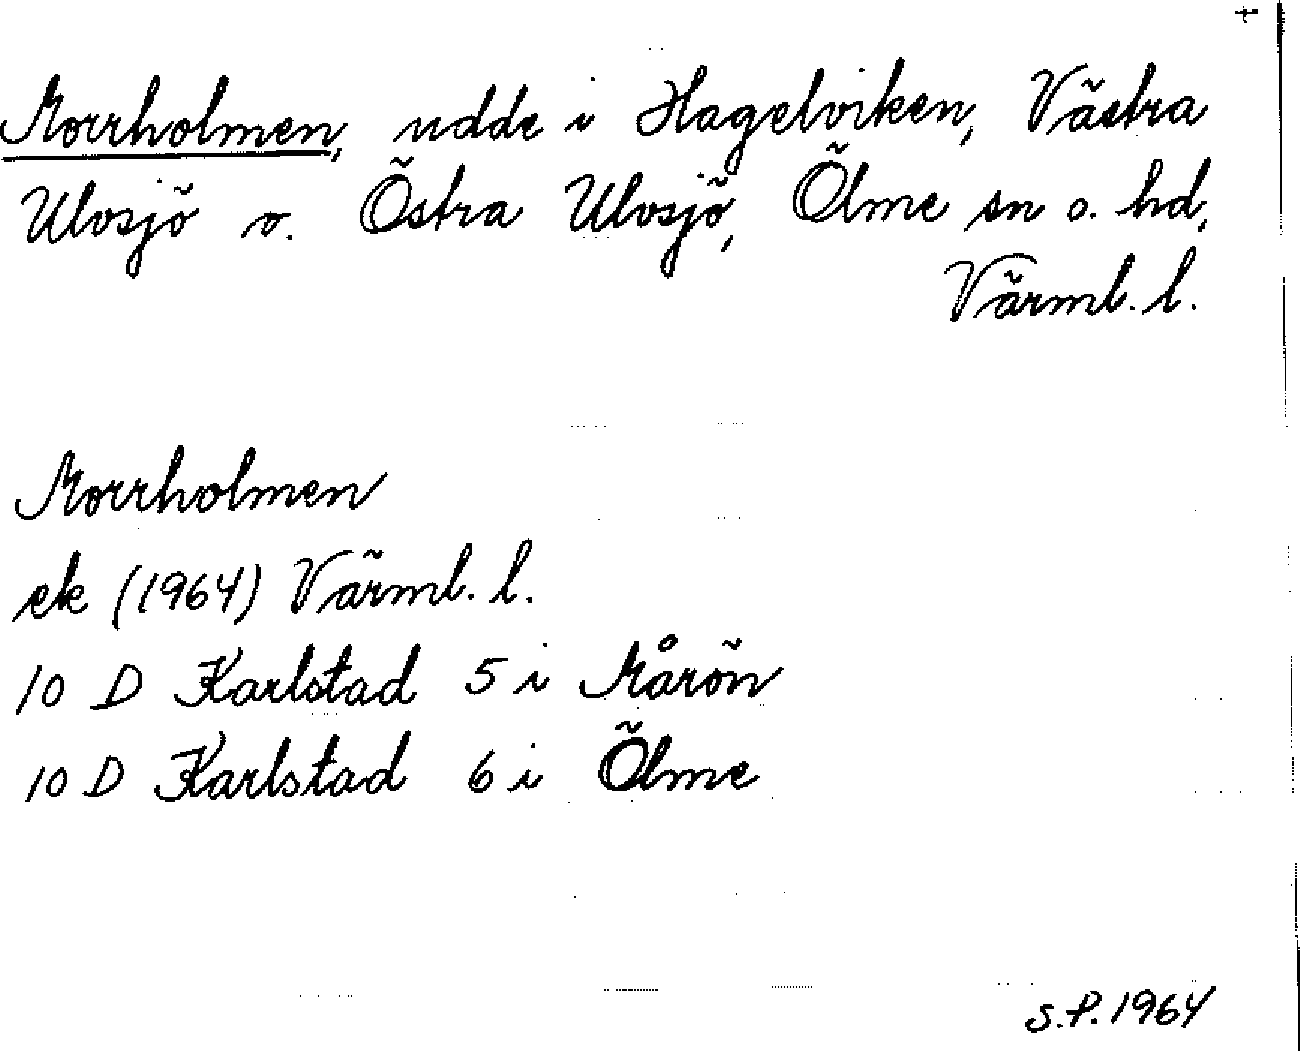 Morrholmen, udde i Hagelviken, Västra
Ulvsjö o. Östra Ulvsjö, Ölme sn o. hd,
Värml. l.
Morrholmen
ek (1964) Värml. l.
10 D Karlstad 5 i Mårön
10 D Karlstad 6 i Ölme
S.P. 1964